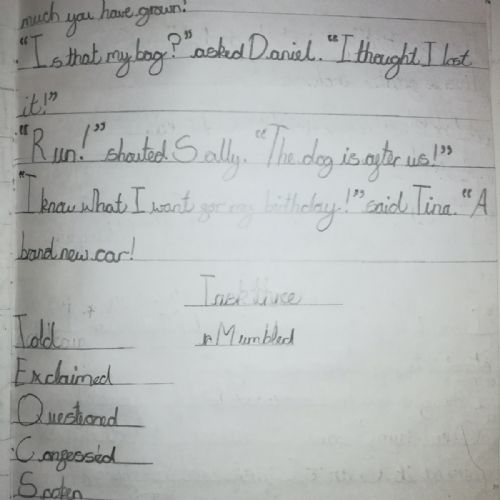 much you have grown!
"Is that my bag?" asked Daniel. "I thought I lost
it!"
"Run!" shouted Sally. "The dog is after us!"
"I know what I want for my birthday!" said Tina. "A
brand new car!
Task three
Told
Mumbled
Exclaimed
Questioned
Confessed